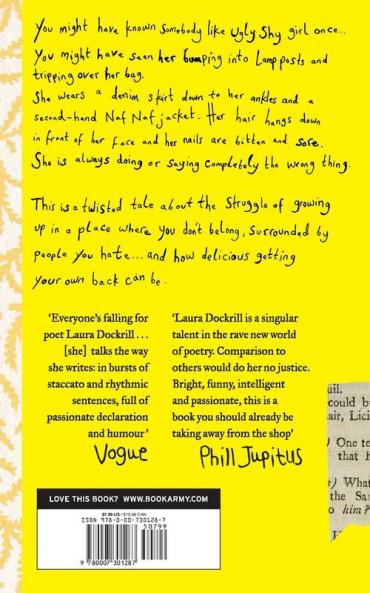 You might have known Somebody like Ugly Shy girl once...
You might have seen her bumping into Lamp posts and
tripping over her bag.
She wears a denim skirt down to her ankles and a
second-hand Naf Naf jacket. Her hair hangs down
in front of her face and her nails are bitten and sore.
She is always doing or saying completely the wrong thing.
This is a twisted tale about the Struggle of growing
up in a place where you don't belong, surrounded by
people you hate... and how delicious getting
your own back can be.
'Everyone's falling for
poet Laura Dockrill ...
[she] talks the way
she writes: in bursts of
staccato and rhythmic
sentences, full of
passionate declaration
and humour'
Vogue
'Laura Dockrill is a singular
talent in the rave new world
of poetry. Comparison to
others would do her no justice.
Bright, funny, intelligent
and passionate, this is a
book you should already be
taking away from the shop'
Phill Jupitus
uil.
could b
air, Lici
) One te
that h
) What
the Sa
o him?
LOVE THIS BOOK? WWW.BOOKARMY.COM
ISBN 978-0-00-730128-7
50799
9 780007 301287